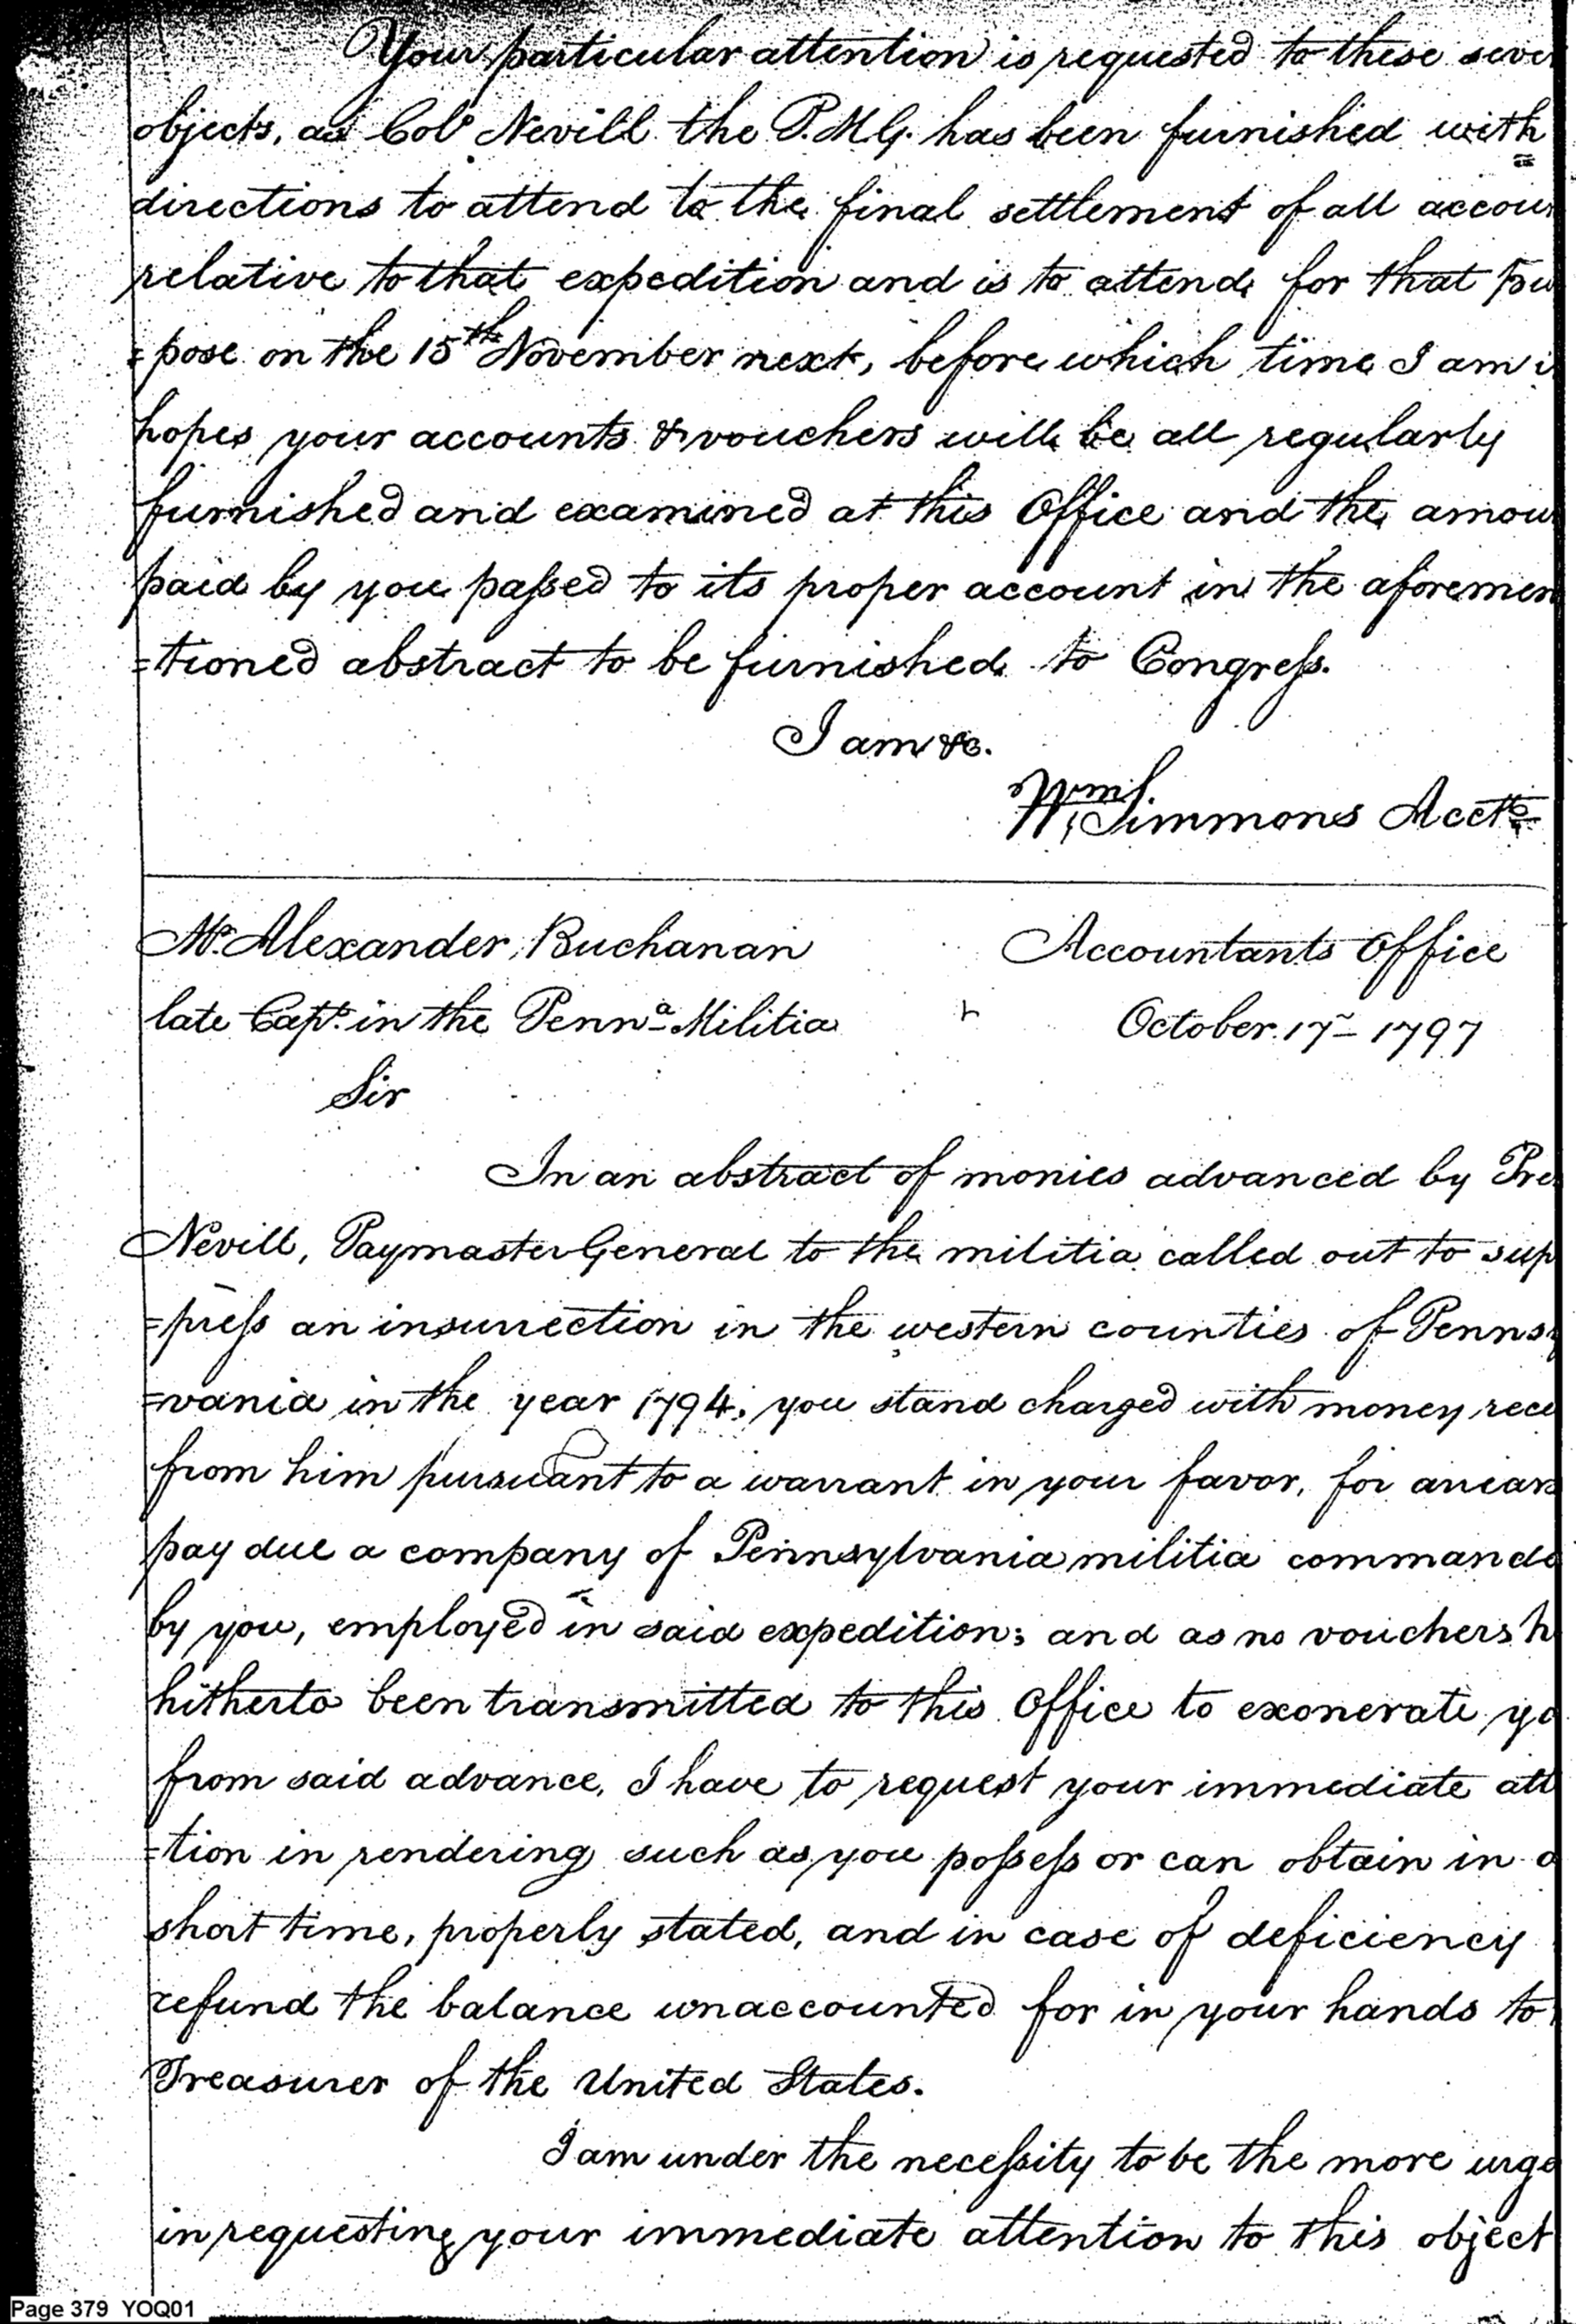 Your particular attention is requested to these seve
objects, as Colo Nevill the P.M.G. has been furnished with
directions to attend to the final settlement of all accoun
relative to that expedition and is to attend for that pu
=pose on the 15th November next, before which time I am i
hopes your accounts & vouchers will be all regularly
furnished and examined at this Office and the amou
paid by you passed to its proper account in the aforemen
=tioned abstract to be furnished to Congress.
I am &c.
Wm Simmons Acctt
Mr Alexander Buchanan
Accountants Office
late Capt. in the Penna Militia
October 17 1797
Sir
In an abstract of monies advanced by Pre
Nevill, Paymaster General to the militia called out to sup
=press an insurrection in the western counties of Pennsy
=vania in the year 1794, you stand charged with money rece
from him pursuant to a warrant in your favor, for arrears
pay due a company of Pennsylvania militia commande
by you, employed in said expedition; and as no vouchers h
hitherto been transmitted to this Office to exonerate yo
from said advance, I have to request your immediate att
=tion in rendering such as you possess or can obtain in a
short time, properly stated, and in case of deficiency
refund the balance unaccounted for in your hands to
Treasurer of the United States.
I am under the necessity to be the more urge
in requesting your immediate attention to this object
Page 379 YOQ01